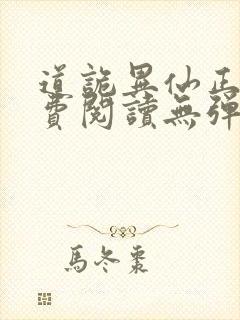 道詭異仙正
費閱讀無彈
馬冬棗